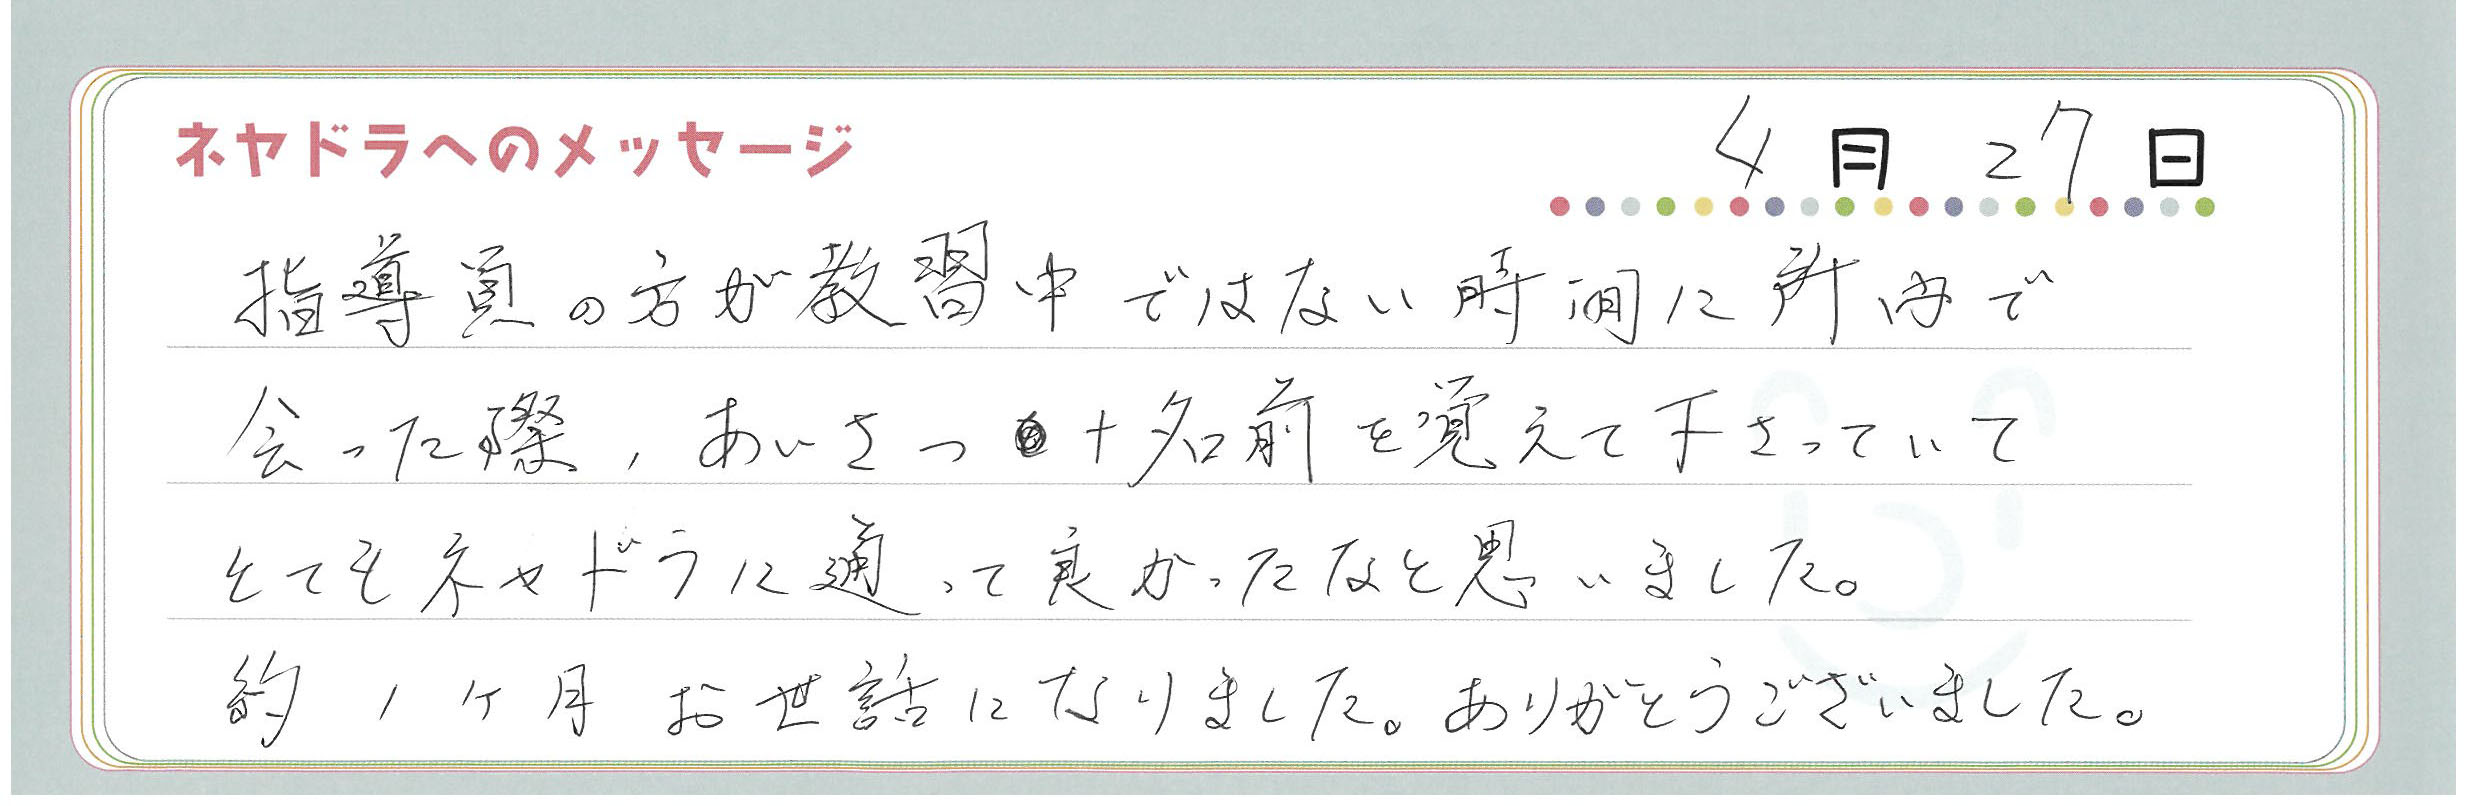 ネヤドラへのメッセージ
4月27日
指導員の方が教習中ではない時間に所内で
会った際、あいさつ+名前を覚えて下さっていて
とてもネヤドラに通って良かったなと思いました。
約1ヶ月お世話になりました。ありがとうございました。